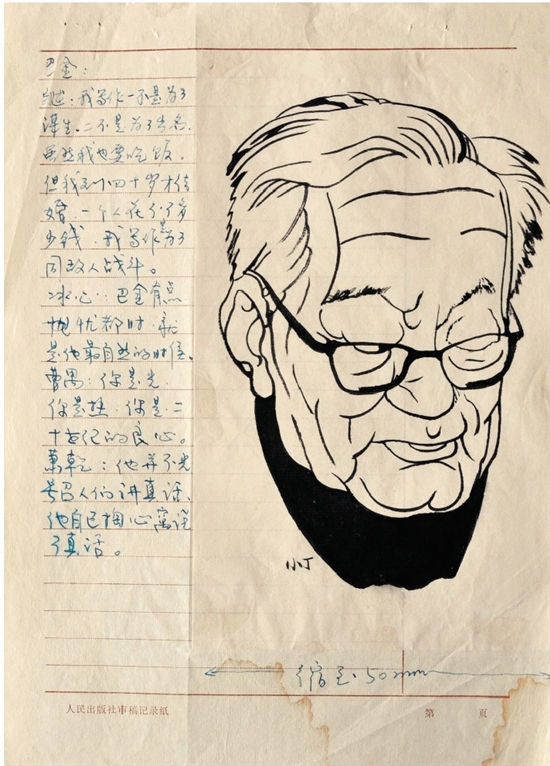 巴金：
自述：我写作一不是为了
谋生、二不是为了出名，
虽然我也要吃饭，
但我到四十岁才结
婚，一个人花不了多
少钱。我写作是为了
同敌人战斗。
冰心：巴金有点
忧郁都时，就
是他最自然的时候。
曹禺：你是光，
你是热，你是二
十世纪的良心。
萧乾：他并不光
号召人们讲真话，
他自己掏心窝说
了真话。
小丁
缩至50mm
人民出版社审稿记录纸
第 页